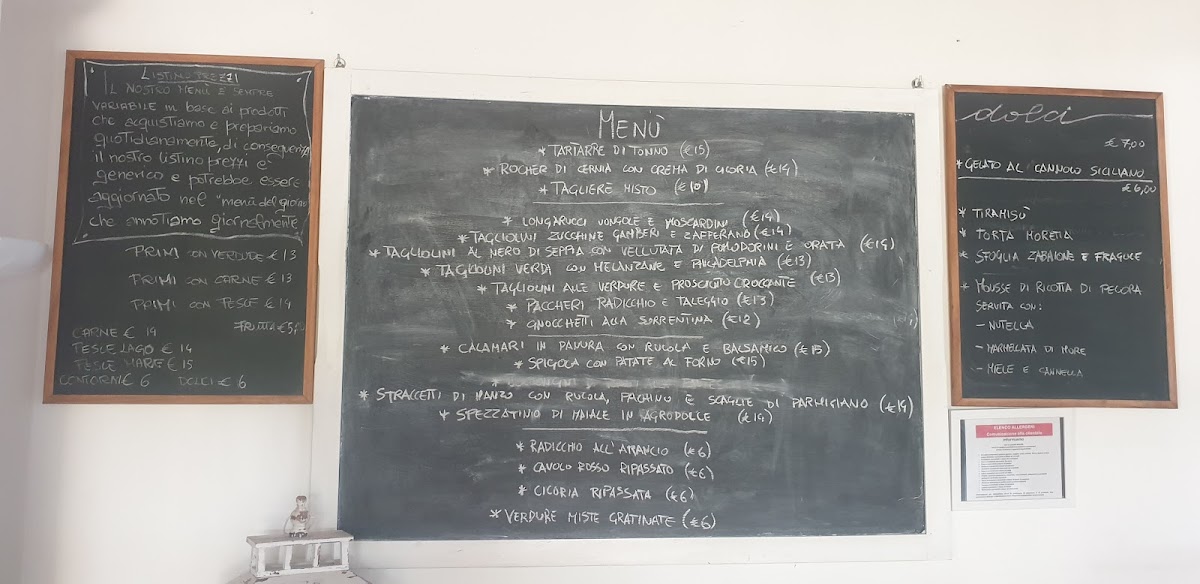 LISTINO PREZZI
IL NOSTRO MENÙ È SEMPRE
VARIABILE in base ai prodotti
che acquistiamo e prepariamo
quotidianamente, di conseguenza
il nostro listino prezzi è
generico e potrebbe essere
aggiornato nel "menù del giorno"
che annotiamo giornalmente
PRIMI CON VERDURE € 13
PRIMI CON CARNE € 13
PRIMI CON PESCE € 14
FRUTTA € 5,00
CARNE € 14
PESCE LAGO € 14
PESCE MARE € 15
CONTORNI € 6 DOLCI € 6
MENÙ
* TARTARRE DI TONNO (€15)
* ROCHER DI CERNIA CON CREMA DI CICORIA (€14)
* TAGLIERE MISTO (€10)
* LONGARUCCI VONGOLE E MOSCARDINI (€14)
* TAGLIOLINI ZUCCHINE GAMBERI E ZAFFERANO (€14)
* TAGLIOLINI AL NERO DI SEPPIA CON VELLUTATA DI POMODORINI E ORATA (€14)
* TAGLIOLINI VERDI CON MELANZANE E PHILADELPHIA (€13)
* TAGLIOLINI ALLE VERDURE E PROSCIUTTO CROCCANTE (€13)
* PACCHERI RADICCHIO E TALEGGIO (€13)
* GNOCCHETTI ALLA SORRENTINA (€12)
* CALAMARI IN PAURA CON RUCOLA E BALSAMICO (€15)
* SPIGOLA CON PATATE AL FORNO (€15)
* STRACCETTI DI MANZO CON RUCOLA, PACHINO E SCAGLIE DI PARMIGIANO (€14)
* SPEZZATINO DI MAIALE IN AGRODOLCE (€14)
* RADICCHIO ALL'ARANCIO (€6)
* CAVOLO ROSSO RIPASSATO (€6)
* CICORIA RIPASSATA (€6)
* VERDURE MISTE GRATINATE (€6)
dolci
€ 7,00
* GELATO AL CANNOLO SICILIANO
€ 6,00
* TIRAMISÙ
* TORTA MORETTA
* SFOGLIA ZABAIONE E FRAGOLE
* MOUSSE DI RICOTTA DI PECORA
SERVITA CON:
- NUTELLA
- MARMELLATA DI MORE
- MIELE E CANNELLA
ELENCO ALLERGENI